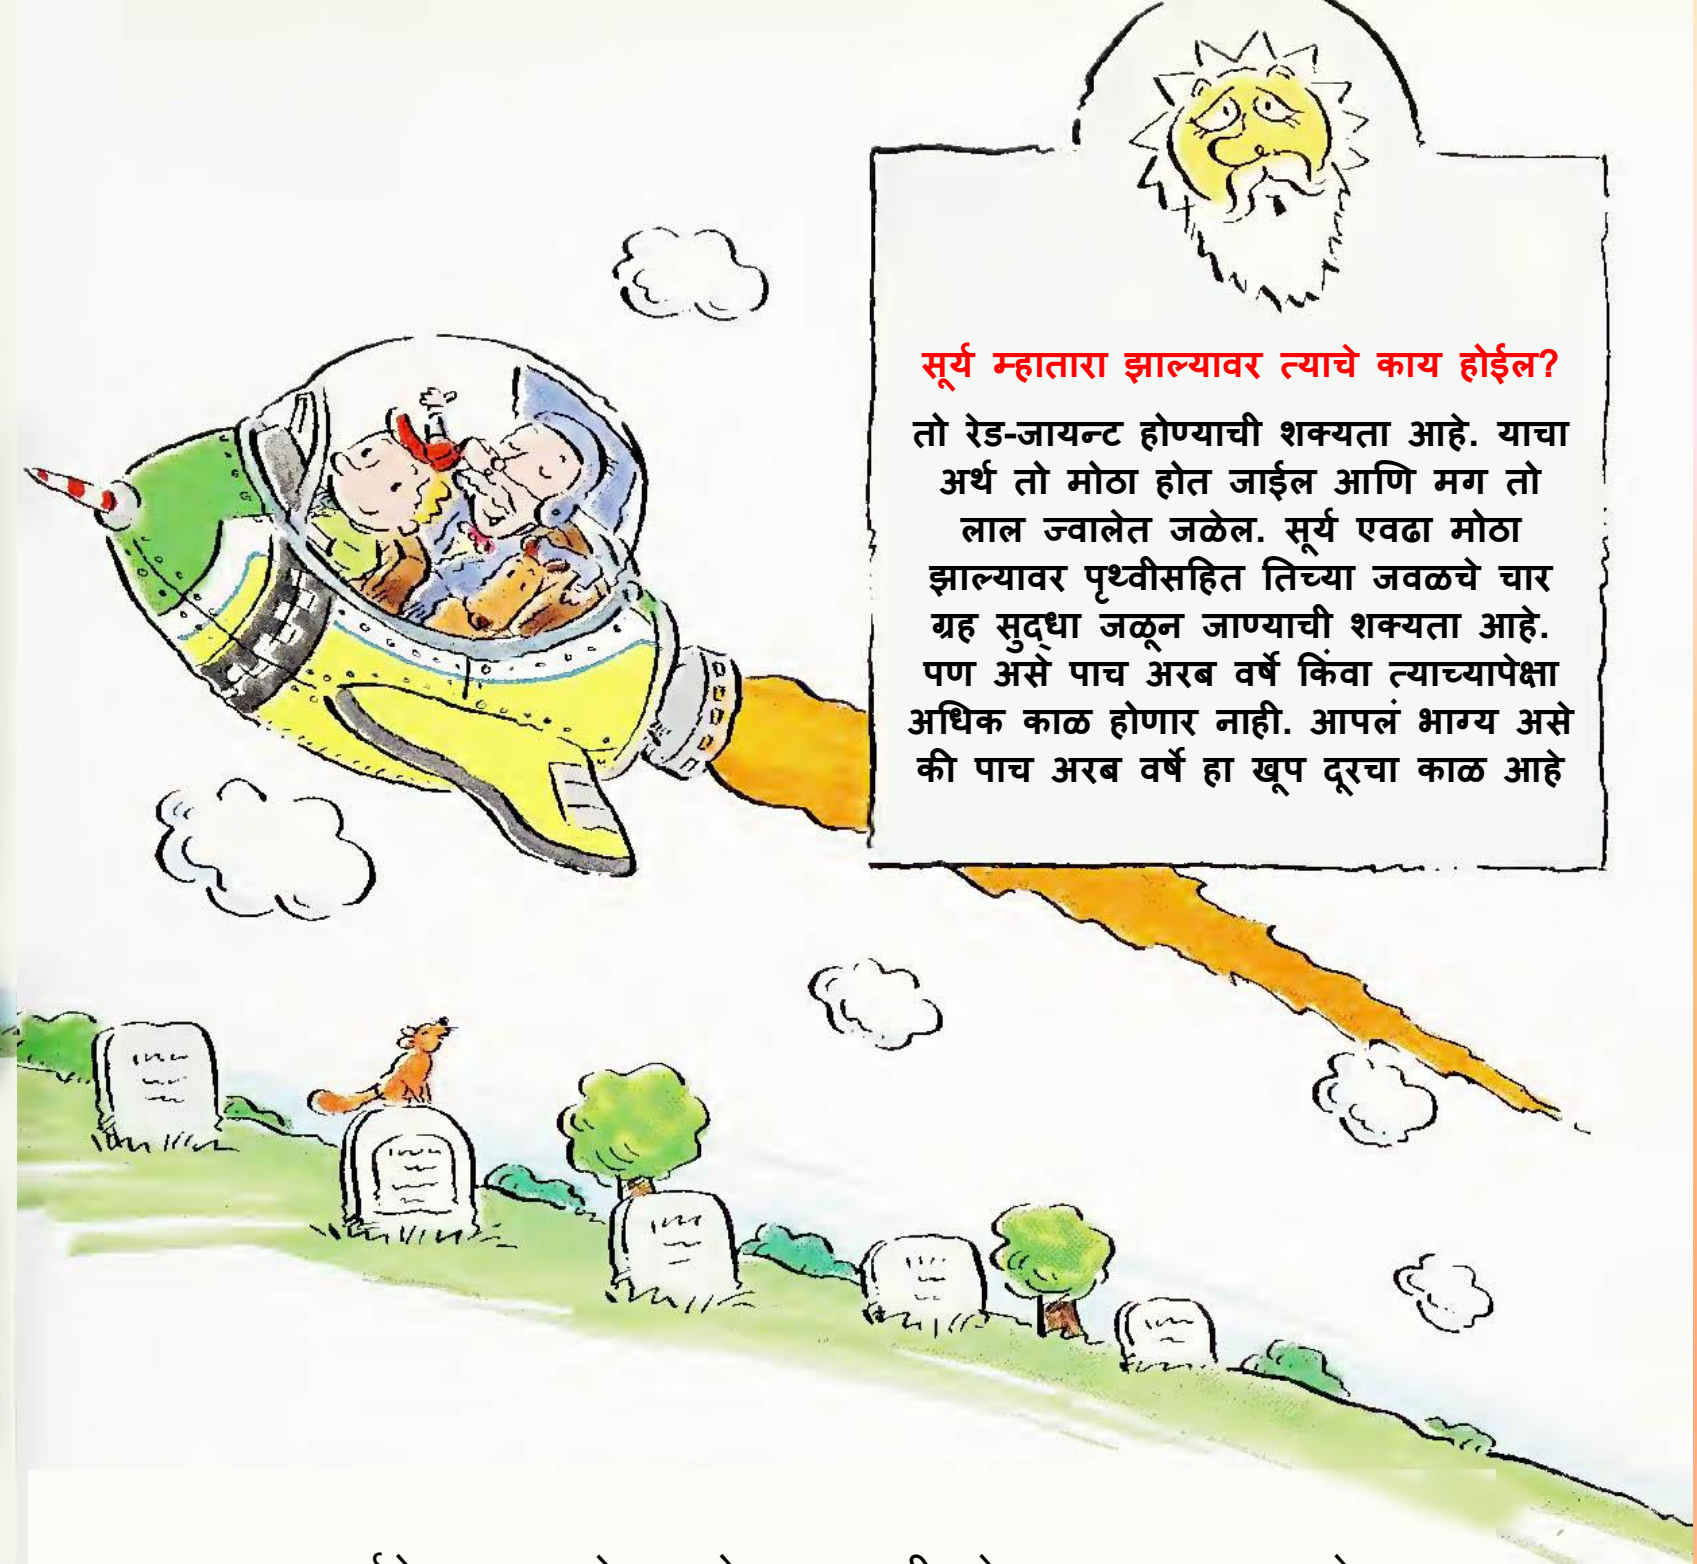 सूर्य म्हातारा झाल्यावर त्याचे काय होईल?
तो रेड-जायन्ट होण्याची शक्यता आहे. याचा
अर्थ तो मोठा होत जाईल आणि मग तो
लाल ज्वालेत जळेल. सूर्य एवढा मोठा
झाल्यावर पृथ्वीसहित तिच्या जवळचे चार
ग्रह सुद्धा जळून जाण्याची शक्यता आहे.
पण असे पाच अरब वर्षे किंवा त्याच्यापेक्षा
अधिक काळ होणार नाही. आपलं भाग्य असे
की पाच अरब वर्षे हा खूप दूरचा काळ आहे